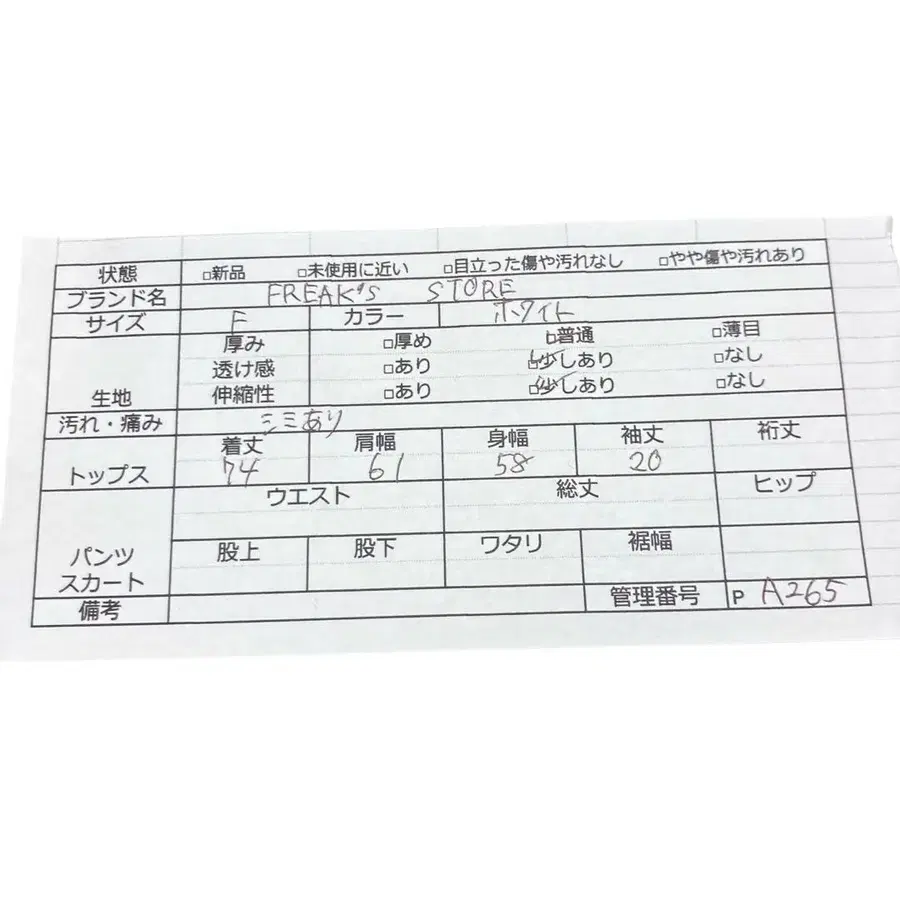 状態 □新品 □未使用に近い □目立った傷や汚れなし □やや傷や汚れあり
ブランド名 FREAK'S STORE
サイズ F カラー ホワイト
生地 厚み □厚め □普通 □薄目
透け感 □あり □少しあり □なし
伸縮性 □あり □少しあり □なし
汚れ・痛み シミあり
トップス 着丈 肩幅 身幅 袖丈 裄丈
74 61 58 20
パンツ スカート ウエスト 総丈 ヒップ
股上 股下 ワタリ 裾幅
備考 管理番号 P A265